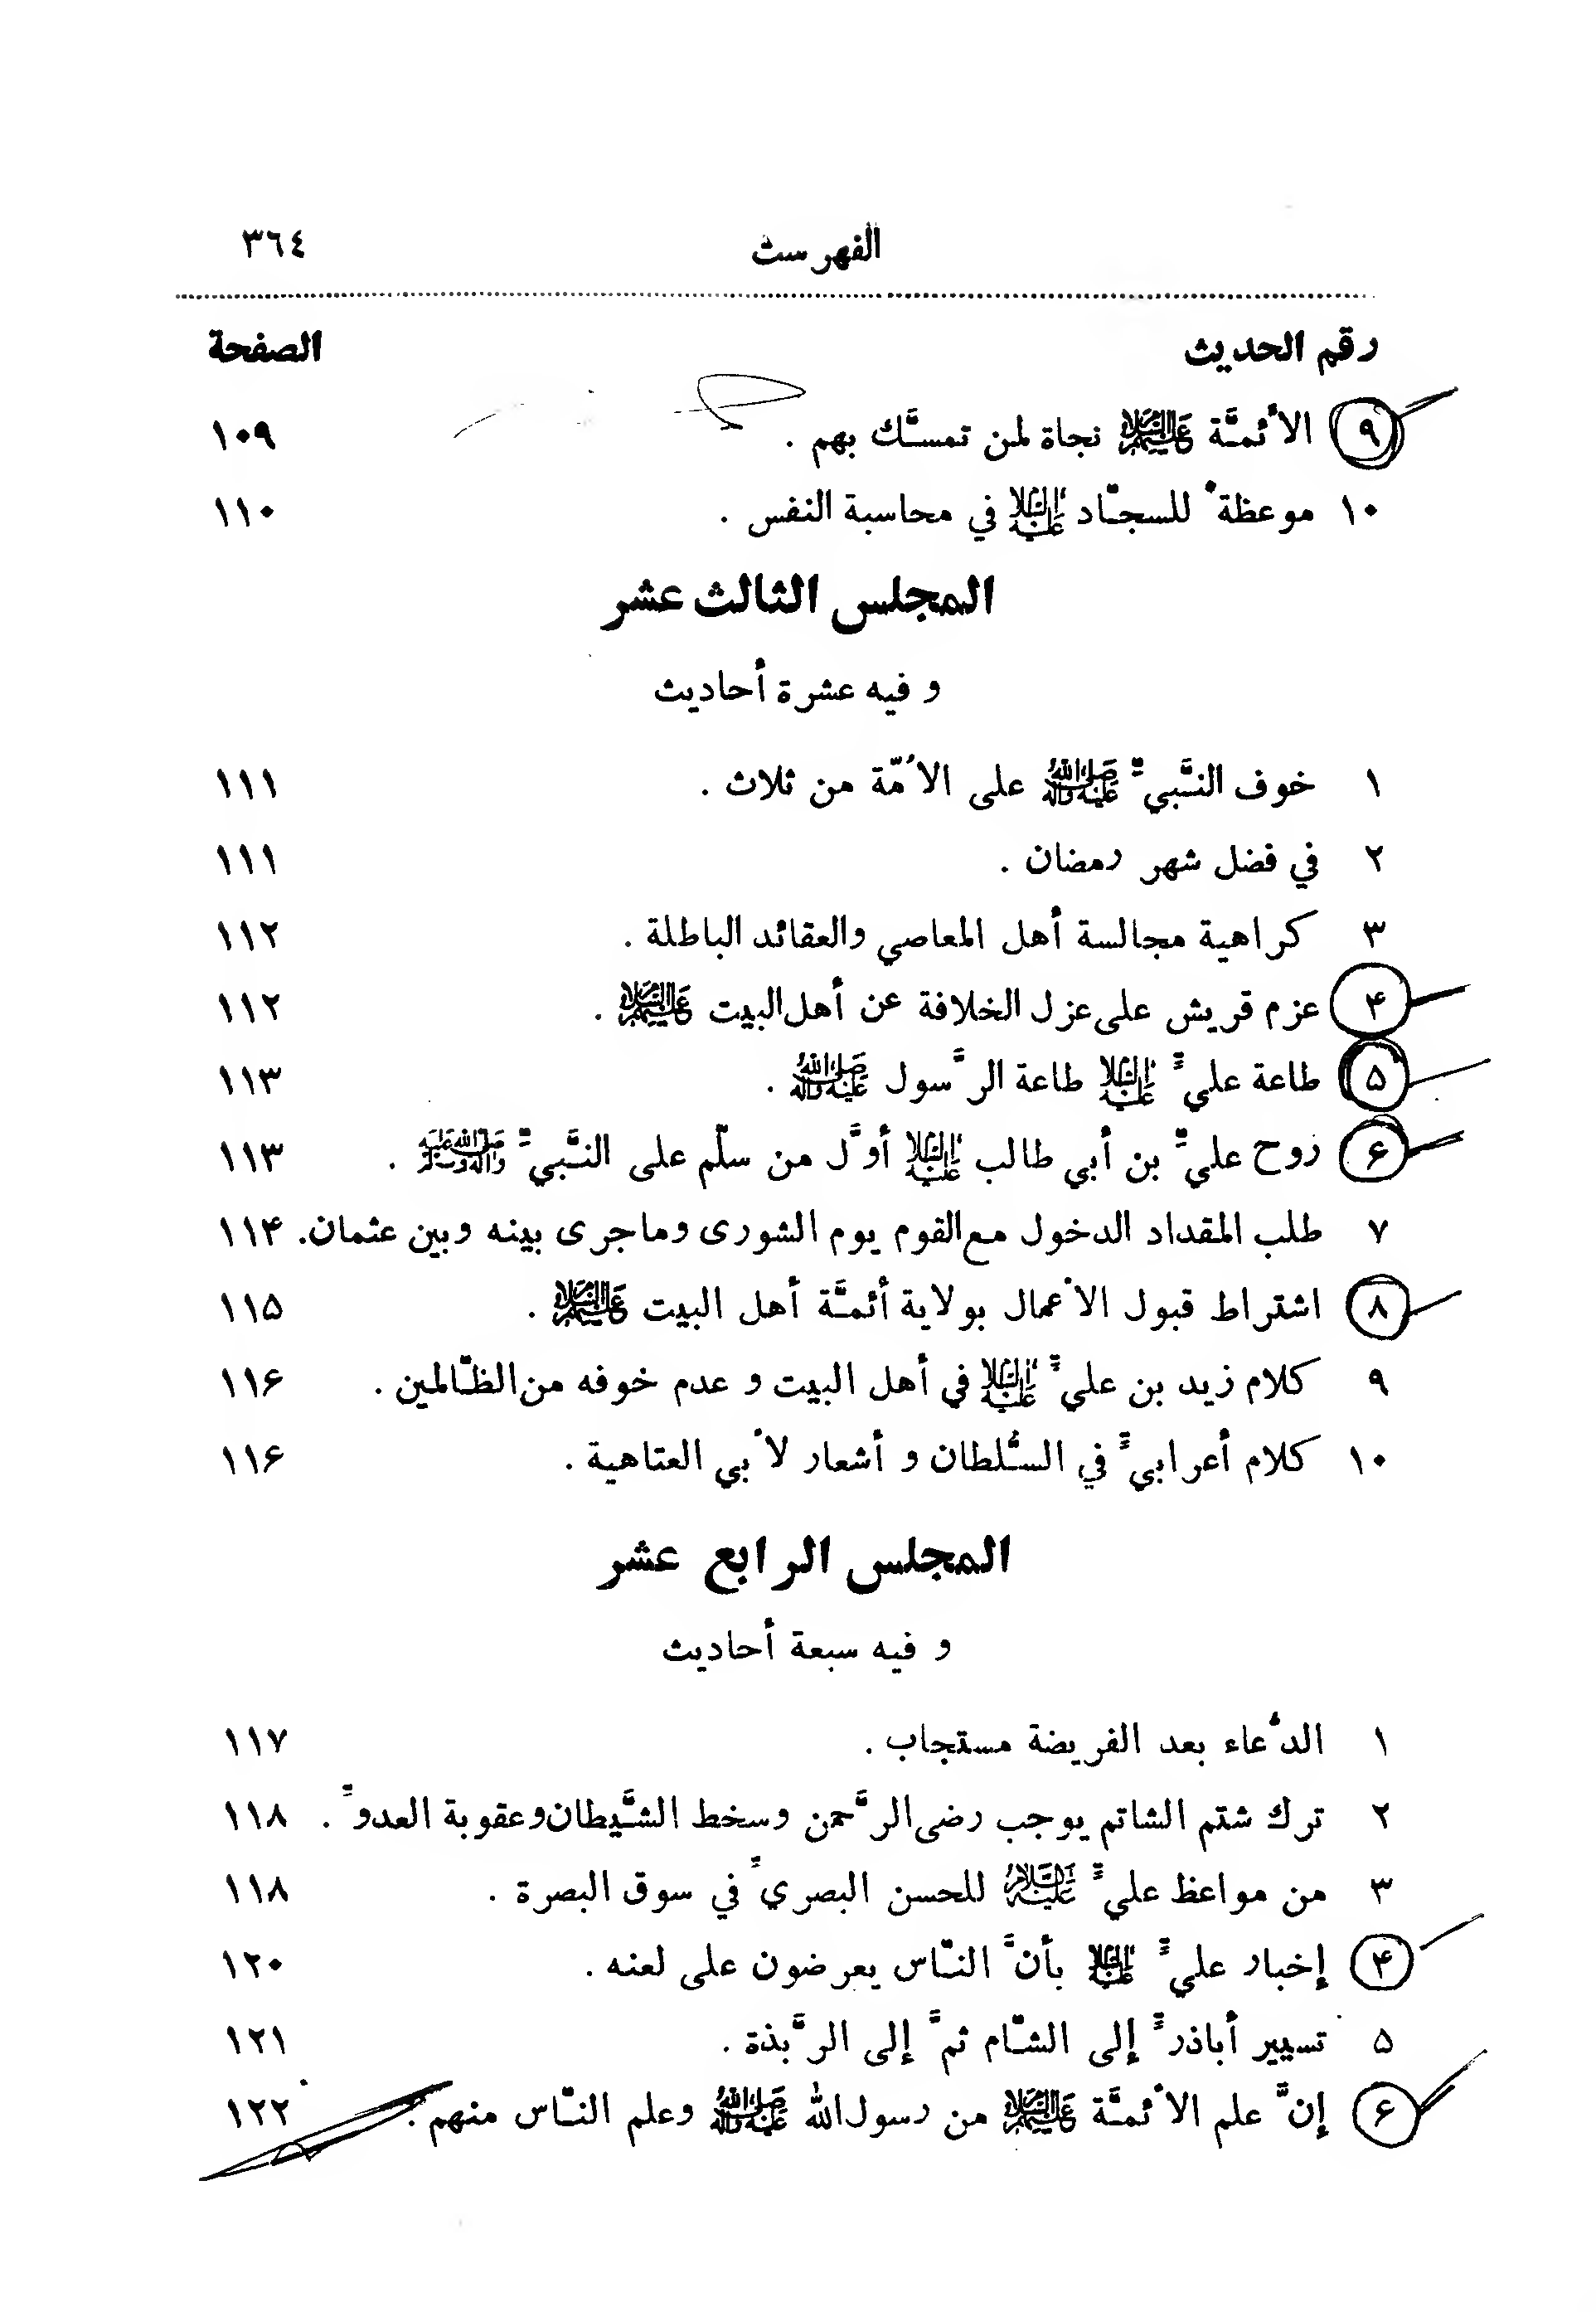 الفهرست ٣٦٤
رقم الحديث الصفحة
۹ الأئمّة عليهم‌السلام نجاة لمن تمسّك بهم . ۱۰۹
۱۰ موعظة للسجّاد عليه‌السلام في محاسبة النفس . ۱۱۰
المجلس الثالث عشر
و فيه عشرة أحاديث
۱ خوف النّبيّ صلى‌الله‌عليه‌وآله على الأُمّة من ثلاث . ۱۱۱
۲ في فضل شهر رمضان . ۱۱۱
۳ كراهية مجالسة أهل المعاصي والعقائد الباطلة . ۱۱۲
۴ عزم قريش على عزل الخلافة عن أهل البيت عليهم‌السلام . ۱۱۲
۵ طاعة عليّ عليه‌السلام طاعة الرَّسول صلى‌الله‌عليه‌وآله . ۱۱۳
۶ روح عليّ بن أبي طالب عليه‌السلام أوَّل من سلّم على النَّبيّ صلى‌الله‌عليه‌وآله‌وسلم . ۱۱۳
۷ طلب المقداد الدخول مع القوم يوم الشورى وما جرى بينه وبين عثمان. ۱۱۴
۸ اشتراط قبول الأعمال بولاية أئمَّة أهل البيت عليهم‌السلام . ۱۱۵
۹ كلام زيد بن عليّ عليه‌السلام في أهل البيت و عدم خوفه من الظّالمين . ۱۱۶
۱۰ كلام أعرابيّ في السُّلطان و أشعار لأبي العتاهية . ۱۱۶
المجلس الرابع عشر
و فيه سبعة أحاديث
۱ الدُّعاء بعد الفريضة مستجاب . ۱۱۷
۲ ترك شتم الشاتم يوجب رضى الرَّحمن وسخط الشَّيطان وعقوبة العدوّ . ۱۱۸
۳ من مواعظ عليّ عليه‌السلام للحسن البصريّ في سوق البصرة . ۱۱۸
۴ إخبار عليّ عليه‌السلام بأنَّ النّاس يعرضون على لعنه . ۱۲۰
۵ تسيير أباذرّ إلى الشّام ثمَّ إلى الرَّبذة . ۱۲۱
۶ إنَّ علم الأئمَّة عليهم‌السلام من رسول الله صلى‌الله‌عليه‌وآله وعلم النّاس منهم . ۱۲۲